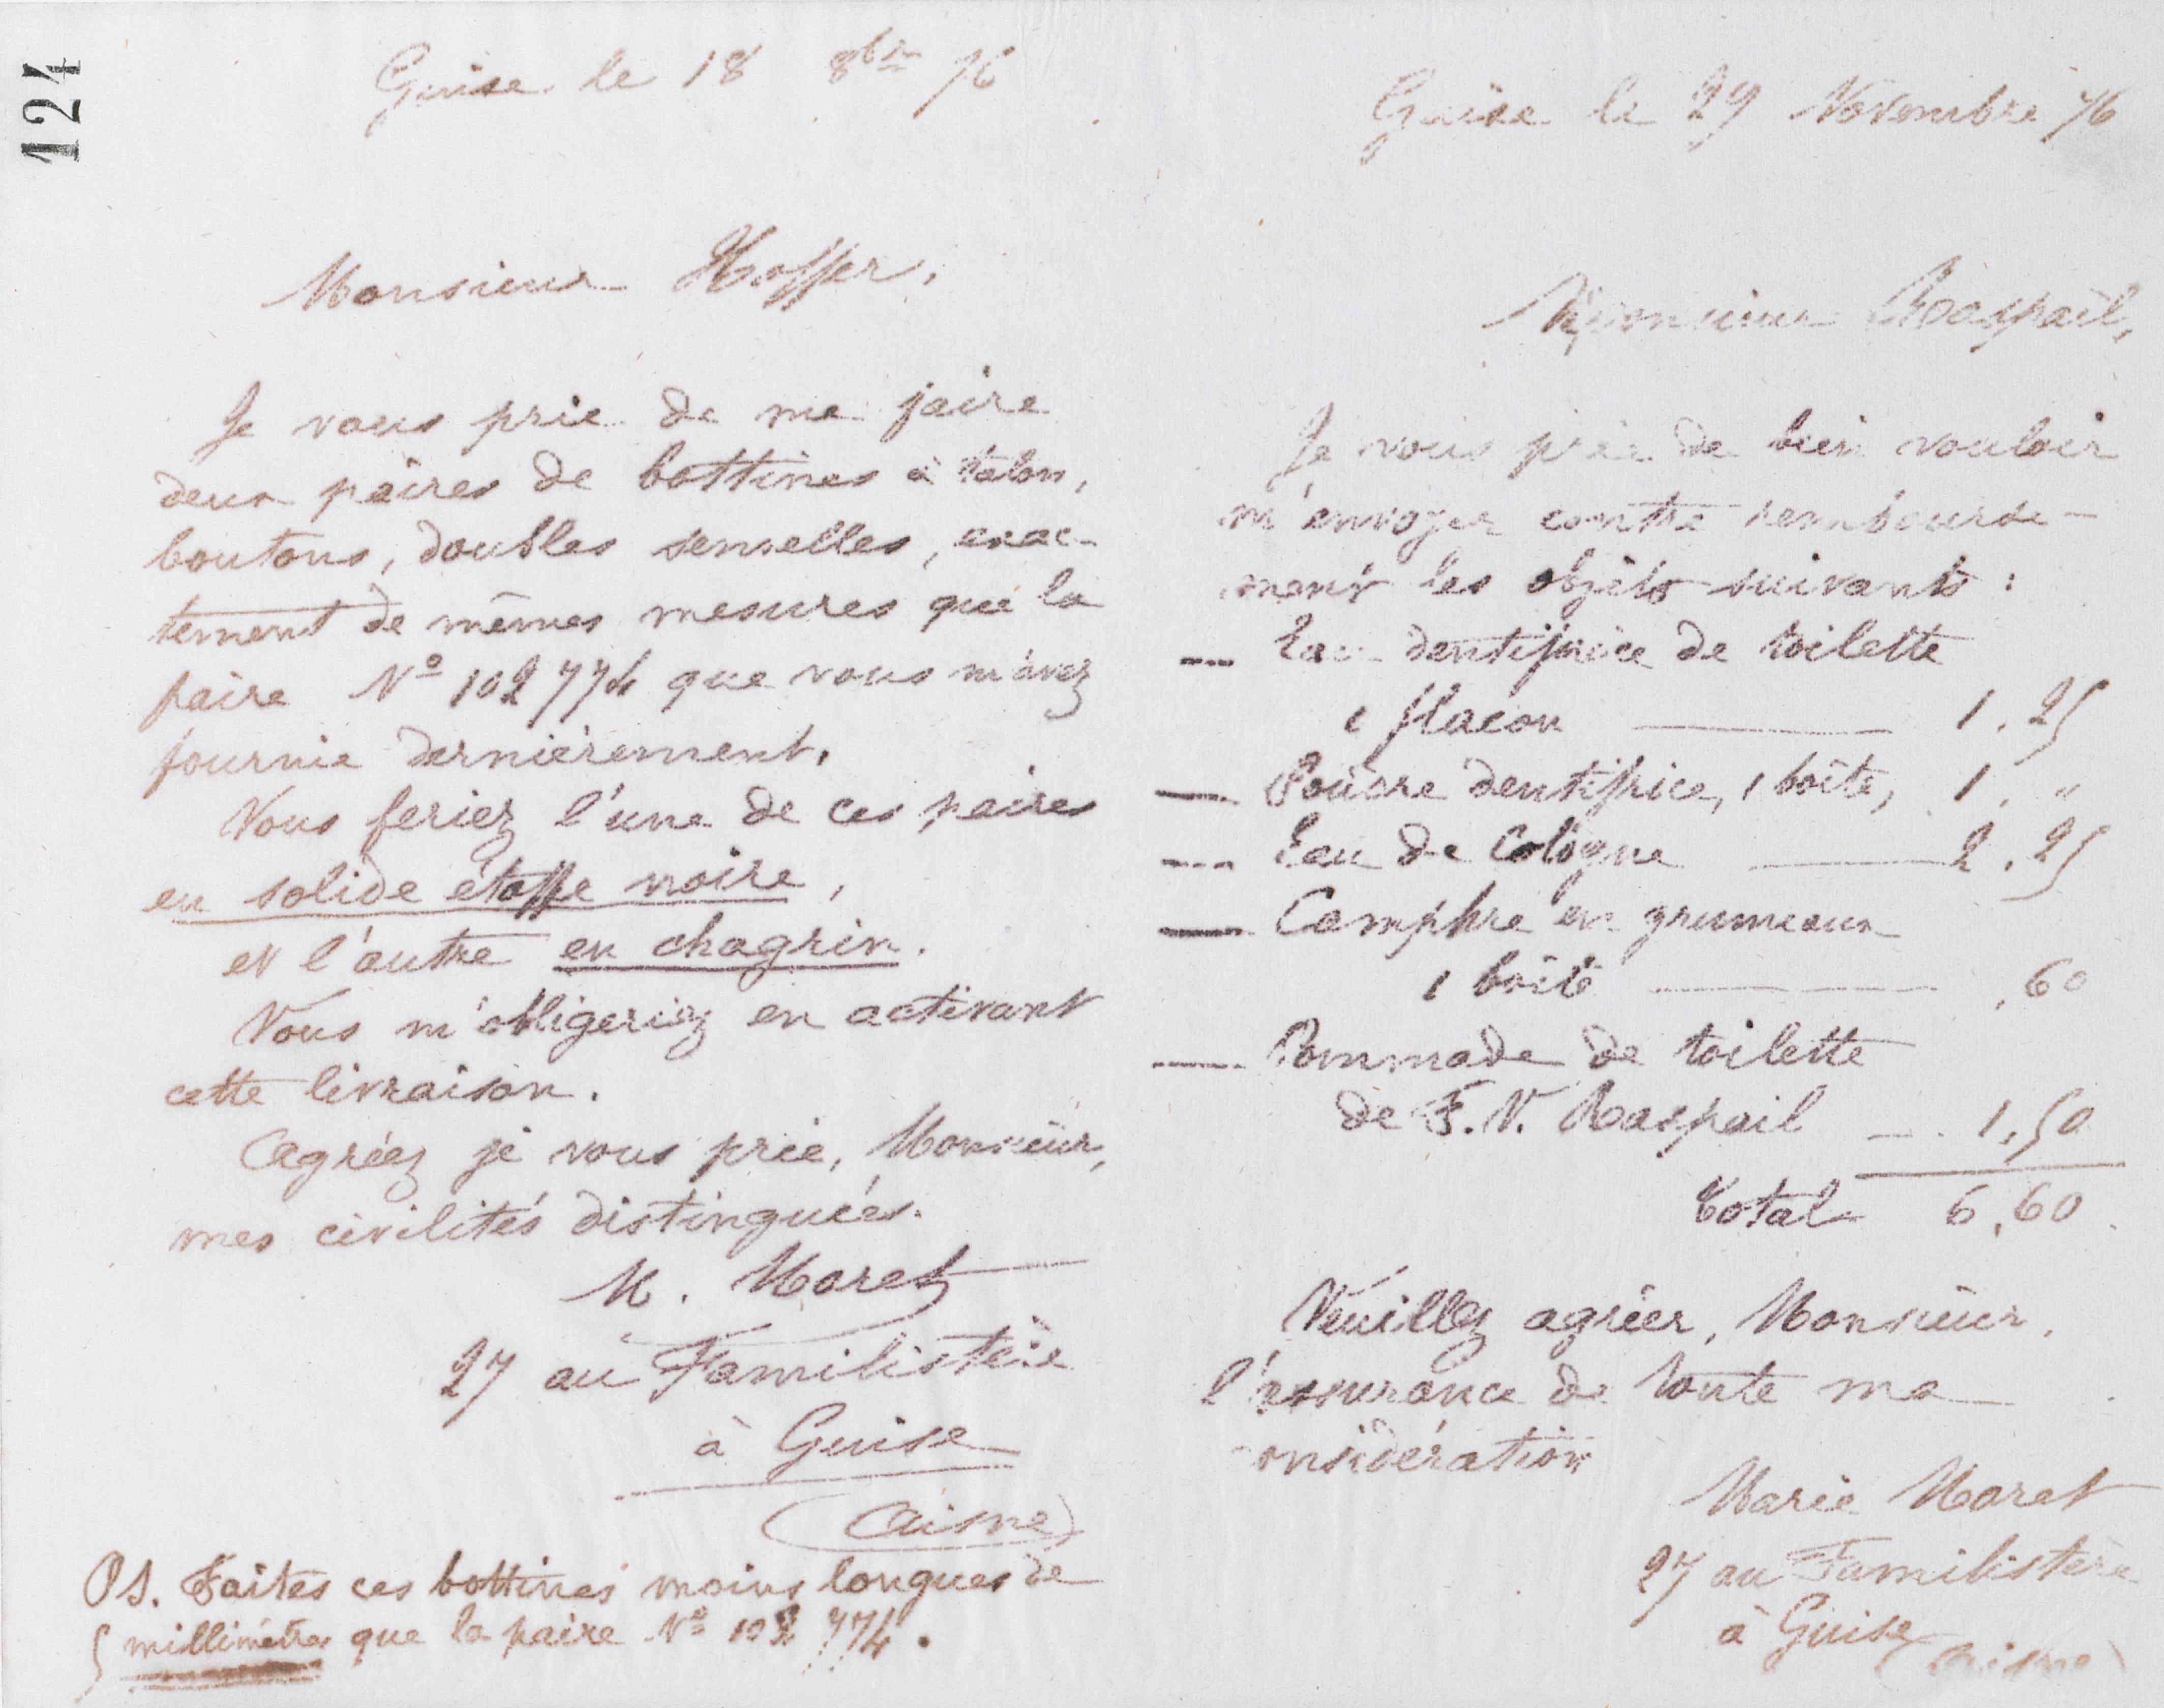 124
Guise le 18 8bre 76
Monsieur Hoffer,
Je vous prie de me faire
deux paires de bottines à talon,
boutons, doubles semelles, exac-
tement de mêmes mesures que la
paire No 102774 que vous m'avez
fournie dernièrement.
Vous feriez l'une de ces paires
en solide étoffe noire,
et l'autre en chagrin.
Vous m'obligeriez en activant
cette livraison.
Agréez je vous prie, Monsieur,
mes civilités distinguées.
M. Moret
27 au Familistère
à Guise
(Aisne)
PS. Faites ces bottines moins longues de
5 millimètres que la paire No 102 774.
Guise le 29 Novembre 76
Monsieur Raspail,
Je vous prie de bien vouloir
m'envoyer contre rembourse-
ment les objets suivants :
— Eau dentifrice de toilette
1 flacon — 1.25
— Poudre dentifrice, 1 boîte, 1. "
— Eau de Cologne — 2.25
— Camphre en grumeaux
1 boîte — .60
— Pommade de toilette
de F. V. Raspail — 1,50
Total 6,60
Veuillez agréer, Monsieur,
l'assurance de toute ma
considération
Marie Moret
27 au Familistère
à Guise
(Aisne)